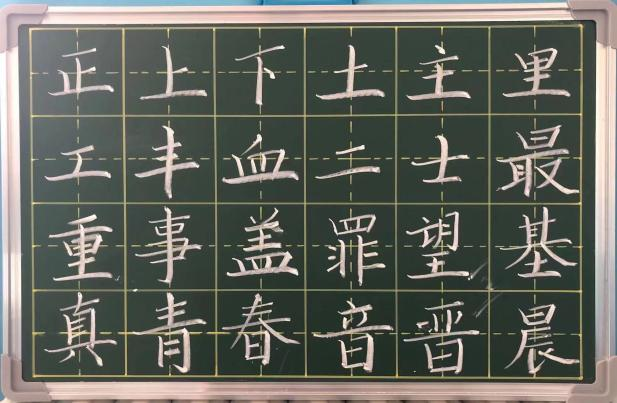 正上下土主里
工丰血二士最
重事盖罪望基
真青春音晋晨